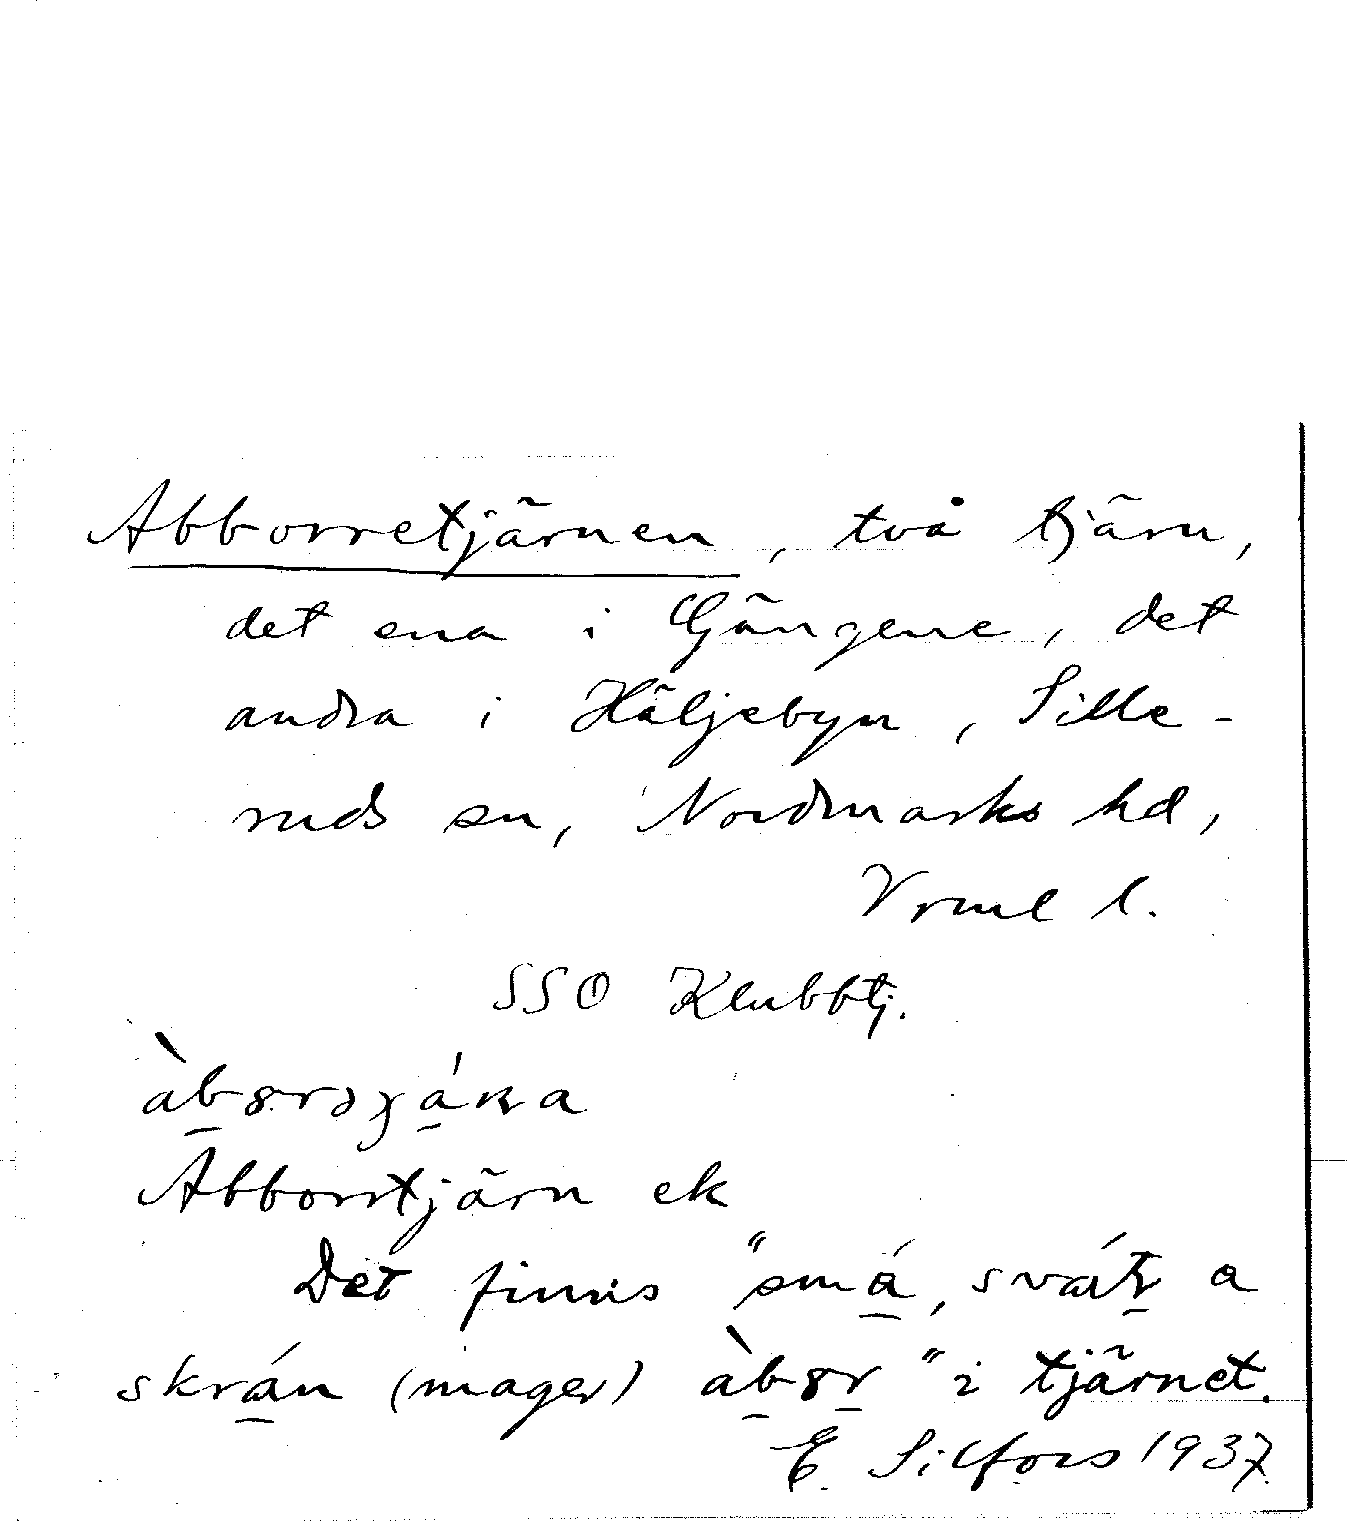 Abborretjärnen, två tjärn,
det ena i Gängene, det
andra i Häljebyn, Sille-
ruds sn, Nordmarks hd,
Vrml l.
SSO Klubbtj.
Abborrtjärn ek
Det finns "små, svárt a
skrán (mager) àb8r" i tjärnet.
E. Silfors 1937